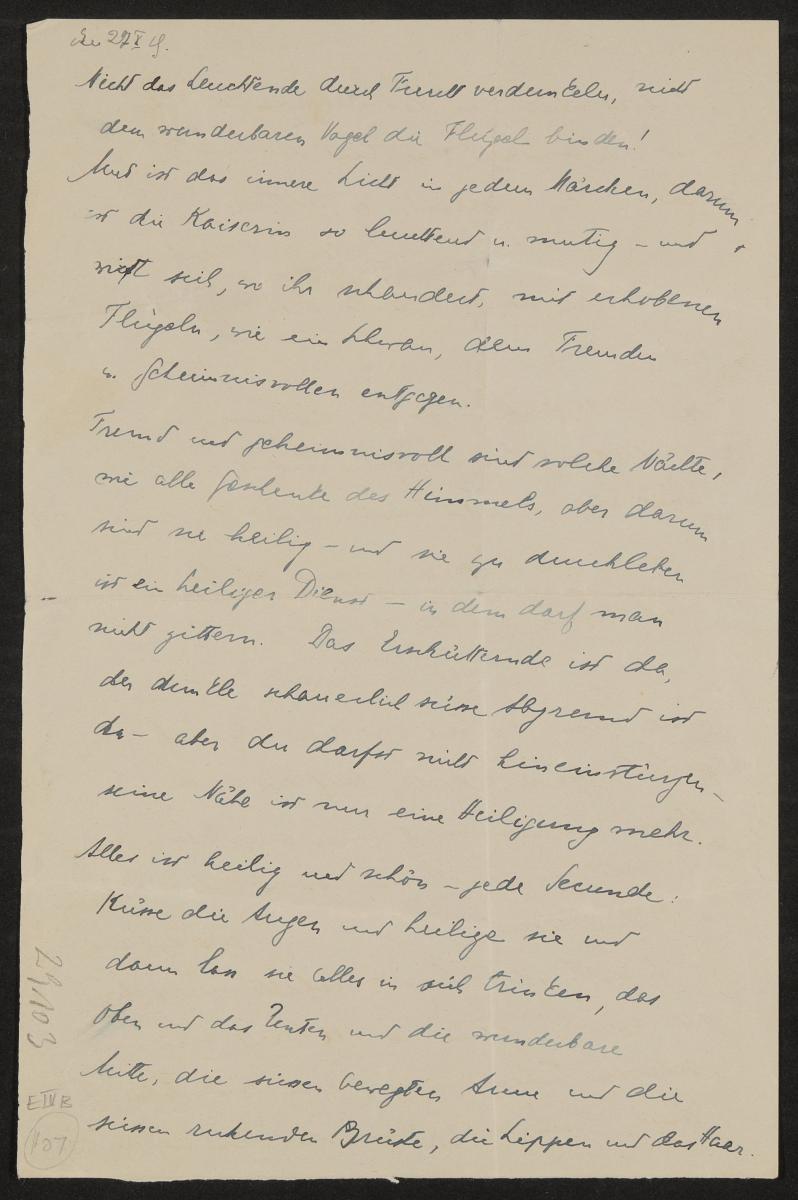 27 X 19.
Nicht das Leuchtende durch Furcht verdunkeln, nicht
dem wunderbaren Vogel die Flügel binden!
Mut ist das innere Licht in jedem Märchen, darum
ist die Kaiserin so leuchtend u. mutig – und
wirft sich, wo ihr schaudert, mit erhobenen
Flügeln, wie ein Schwan, dem Fremden
u. Geheimnisvollen entgegen.
Fremd und geheimnisvoll sind solche Nächte,
wie alle Geschenke des Himmels, aber darum
sind sie heilig – und sie zu durchleben
ist ein heiliger Dienst – in dem darf man
nicht zittern. Das Erschütternde ist da,
der dunkle schauerlich süsse Abgrund ist
da – aber du darfst nicht hineinstürzen –
seine Nähe ist nur eine Heiligung mehr.
Alles ist heilig und schön – jede Secunde:
Küsse die Augen und heilige sie und
dann lass sie alles in sich trinken, das
Oben und das Unten und die wunderbare
Mitte, die süssen bewegten Arme und die
süssen ruhenden Brüste, die Lippen und das Haar.
29/103
E IV B
107